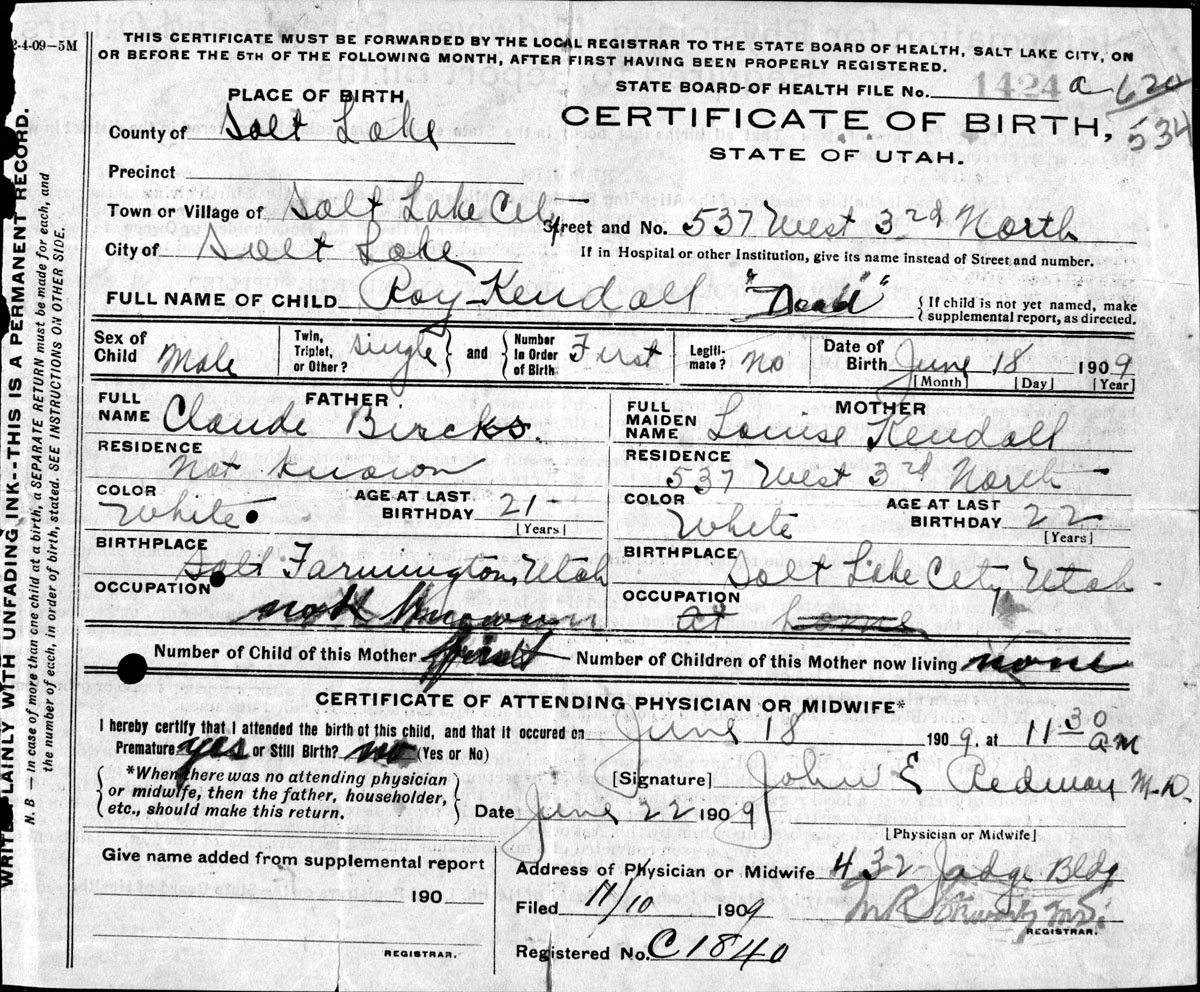 2-4-09—5M
THIS CERTIFICATE MUST BE FORWARDED BY THE LOCAL REGISTRAR TO THE STATE BOARD OF HEALTH, SALT LAKE CITY, ON
OR BEFORE THE 5TH OF THE FOLLOWING MONTH, AFTER FIRST HAVING BEEN PROPERLY REGISTERED.
STATE BOARD OF HEALTH FILE No. 1424 a 620
534
CERTIFICATE OF BIRTH,
STATE OF UTAH.
PLACE OF BIRTH
County of Salt Lake
Precinct
Town or Village of Salt Lake City Street and No. 537 West 3rd North
City of Salt Lake If in Hospital or other Institution, give its name instead of Street and number.
FULL NAME OF CHILD Roy Kendall "Dead" { If child is not yet named, make
supplemental report, as directed.
Sex of Child Male Twin, Triplet, or Other? single } and { Number In Order of Birth First Legiti-mate? No Date of Birth June 18 1909
[Month] [Day] [Year]
FATHER MOTHER
FULL NAME Claude Bircks. FULL MAIDEN NAME Louise Kendall
RESIDENCE Not Known RESIDENCE 537 West 3rd North
COLOR White AGE AT LAST BIRTHDAY 21 [Years] COLOR White AGE AT LAST BIRTHDAY 22 [Years]
BIRTHPLACE Salt Farmington, Utah BIRTHPLACE Salt Lake City Utah
OCCUPATION not Known OCCUPATION at home
Number of Child of this Mother first Number of Children of this Mother now living none
CERTIFICATE OF ATTENDING PHYSICIAN OR MIDWIFE*
I hereby certify that I attended the birth of this child, and that it occured on June 18 1909. at 11 30 am
Premature yes or Still Birth? no (Yes or No)
{ *When there was no attending physician
or midwife, then the father, householder,
etc., should make this return. }
[Signature] John E Redway M.D.
Date June 22 1909
[Physician or Midwife]
Give name added from supplemental report
190
REGISTRAR.
Address of Physician or Midwife 432 Judge Bldg
Filed 11/10 1909
REGISTRAR.
Registered No. C1840
WRITE PLAINLY WITH UNFADING INK--THIS IS A PERMANENT RECORD.
N. B —In case of more than one child at a birth, a SEPARATE RETURN must be made for each, and
the number of each, in order of birth, stated. SEE INSTRUCTIONS ON OTHER SIDE.